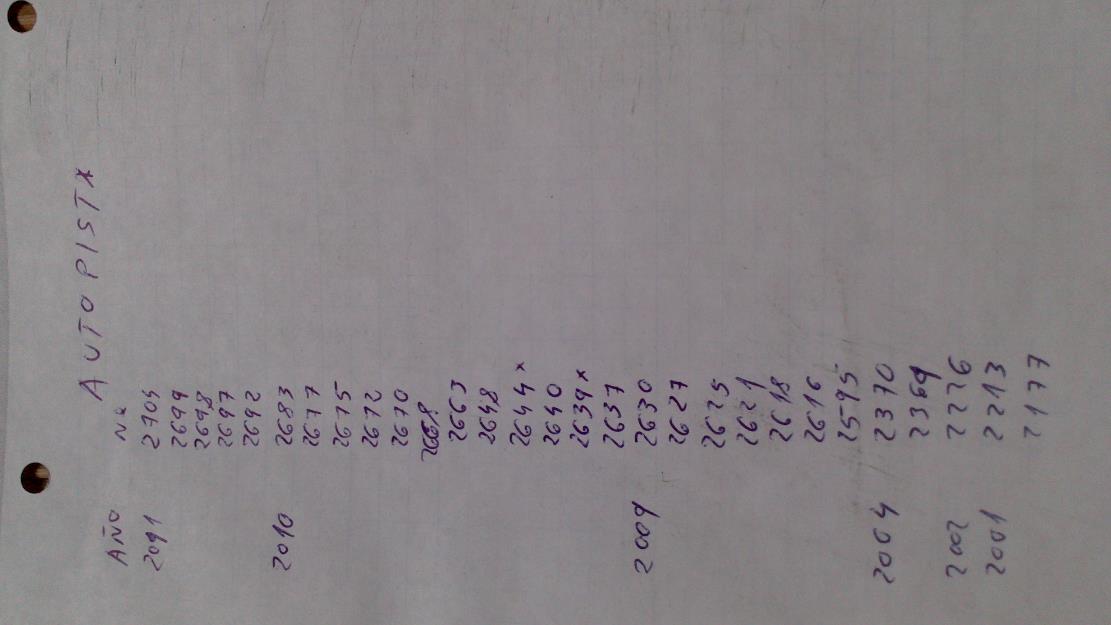 AUTOPISTA
AÑO Nº
2011 2704
2699
2698
2697
2692
2010 2683
2677
2675
2672
2670
2668
2663
2648
2644 x
2640
2639 x
2637
2009 2630
2627
2625
2621
2618
2616
2595
2004 2370
2369
2002 2226
2001 2213
2177